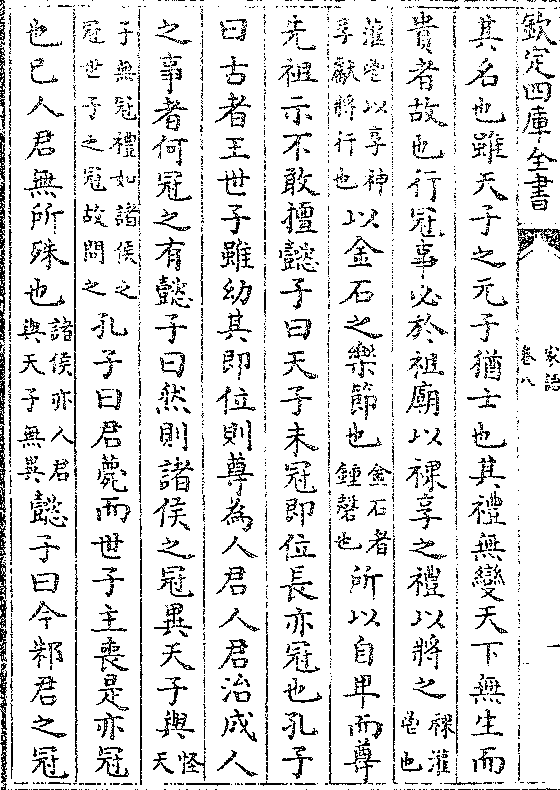 欽定四庫全書
家語
卷八
一
其名也雖天子之元子猶士也其禮無變天下無生而
貴者故也行冠事必於祖廟以祼享之禮以將之祼灌鬯也
灌鬯以享神享獻將行也以金石之樂節也金石者鍾磬也所以自卑而尊
先祖示不敢擅懿子曰天子未冠即位長亦冠也孔子
曰古者王世子雖幼其即位則尊為人君人君治成人
之事者何冠之有懿子曰然則諸侯之冠異天子與怪天
子無冠禮如諸侯之冠世子之冠故問之孔子曰君薨而世子主喪是亦冠
也已人君無所殊也諸侯亦人君與天子無異懿子曰今邾君之冠